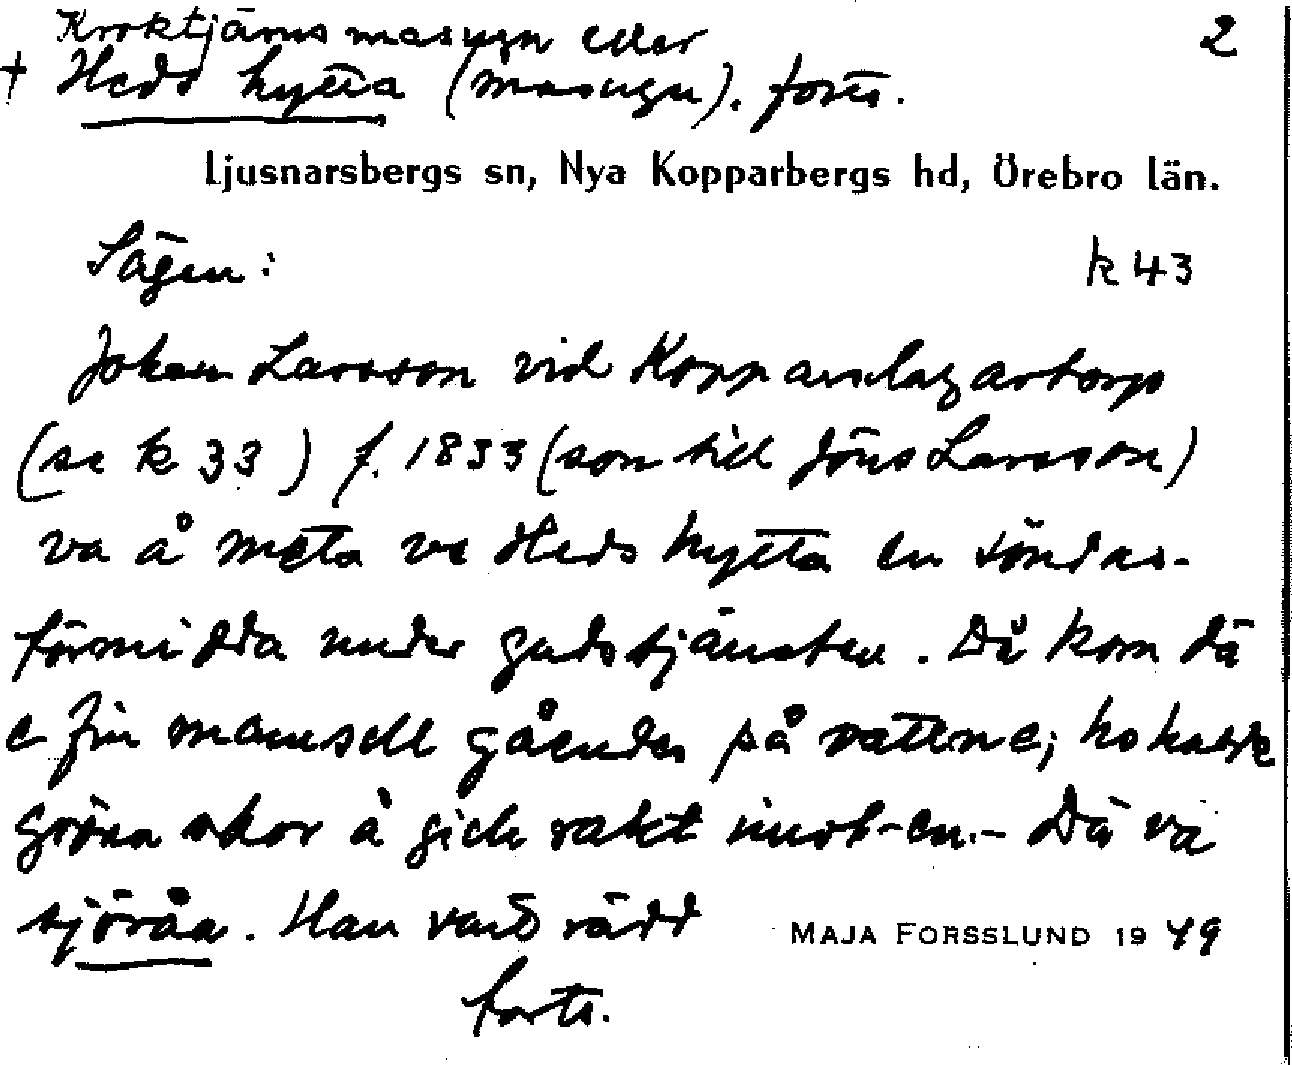 Kroktjärns masugn eller 2
† Heds hytta (masugn). forts.
Ljusnarsbergs sn, Nya Kopparbergs hd, Örebro län.
Sägen: k 43
Johan Larsson vid Kopparslagartorp
(se k 33) f. 1833 (son till Jöns Larsson)
va å meta ve Heds hytta en söndas-
förmidda under gudstjänsten. Då kom dä
e fin mamsell gåendes på vattene; ho hade
gröna skor å gick rakt imot-en.- Dä va
sjöråa. Han vart rädd MAJA FORSSLUND 1949
forts.